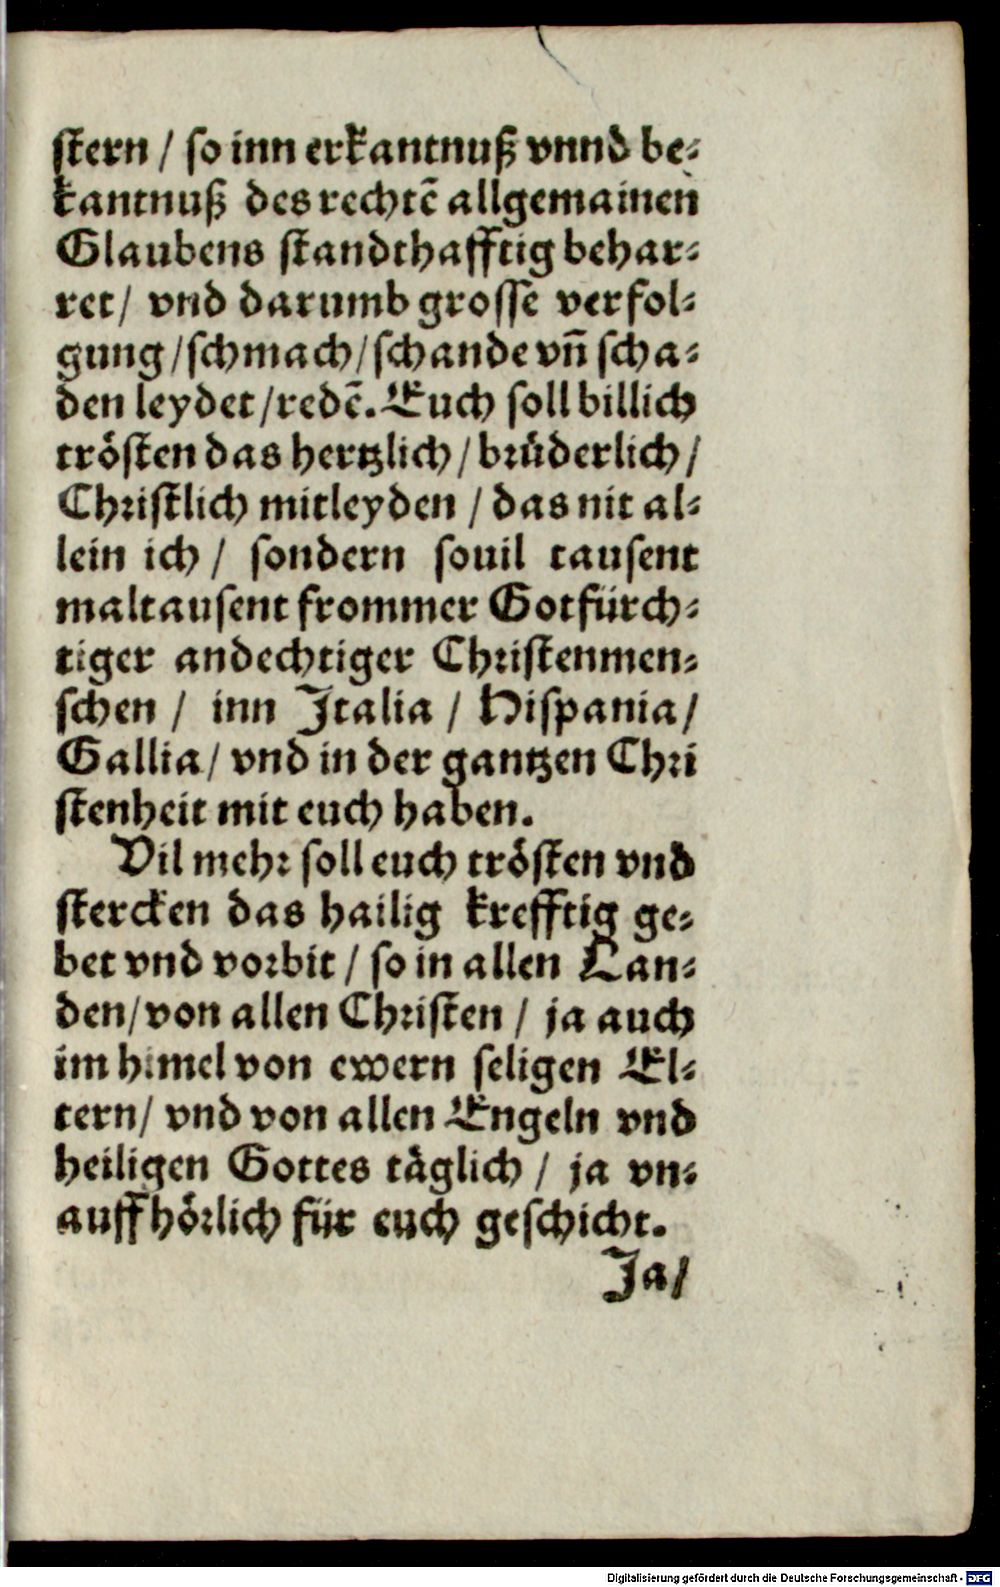 stern / so inn erkantnuß vnnd be⸗
kantnuß des rechtẽ allgemainen
Glaubens standthafftig behar⸗
ret / vnd darumb grosse verfol⸗
gung / schmach / schande vñ scha⸗
den leydet / redẽ. Euch soll billich
trösten das hertzlich / brüderlich /
Christlich mitleyden / das nit al⸗
lein ich / sondern souil tausent
maltausent frommer Gotfürch⸗
tiger andechtiger Christenmen⸗
schen / inn Italia / Hispania /
Gallia / vnd in der gantzen Chri
stenheit mit euch haben.
Vil mehr soll euch trösten vnd
stercken das hailig krefftig ge⸗
bet vnd vorbit / so in allen Lan⸗
den / von allen Christen / ja auch
im himel von ewern seligen El⸗
tern / vnd von allen Engeln vnd
heiligen Gottes täglich / ja vn⸗
auffhörlich für euch geschicht.
Ja /
Digitalisierung gefördert durch die Deutsche Forschungsgemeinschaft - DFG